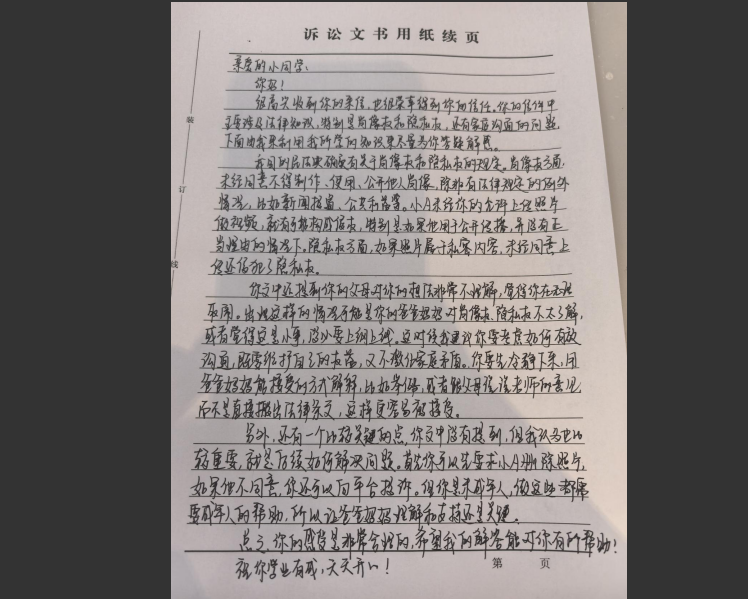 诉讼文书用纸续页
亲爱的小同学:
你好!
很高兴收到你的来信,也很荣幸得到你的信任。你的信件中
主要涉及法律知识,特别是肖像权和隐私权,还有家庭沟通的问题,
下面由我来利用我所学的知识来尽量为你答疑解惑。
我国的民法典确实有关于肖像权和隐私权的规定。肖像权方面,
未经同意不得制作、使用、公开他人肖像,除非有法律规定的例外
情况,比如新闻报道、公共利益等。小A未经你的允许上传照片
做视频,就有可能构成侵权,特别是如果他用于公开传播,并没有正
当理由的情况下。隐私权方面,如果照片属于私密内容,未经同意上
传还侵犯了隐私权。
你文中还提到你的父母对你的想法非常不理解,觉得你在无理
取闹。出现这样的情况可能是你的爸爸妈妈对肖像权、隐私权不太了解,
或者觉得这是小事,没必要上纲上线。这时候我建议你要考虑如何有效
沟通,既要维护自己的权益,又不激化家庭矛盾。你要先冷静下来,用
爸爸妈妈能接受的方式解释,比如举例,或者给父母说说老师的意见
而不是直接搬出法律条文,这样更容易被接受。
另外,还有一个比较关键的点,你文中没有提到,但我认为也比
较重要,就是后续如何解决问题。首先你可以先要求小A删除照片,
如果他不同意,你还可以向平台投诉。但你是未成年人,做这些都需
要成年人的帮助,所以让爸爸妈妈理解和支持还是关键。
总之,你的感受是非常合理的,希望我的解答能对你有所帮助!
祝你学业有成,天天开心!
第 页
装
订
线